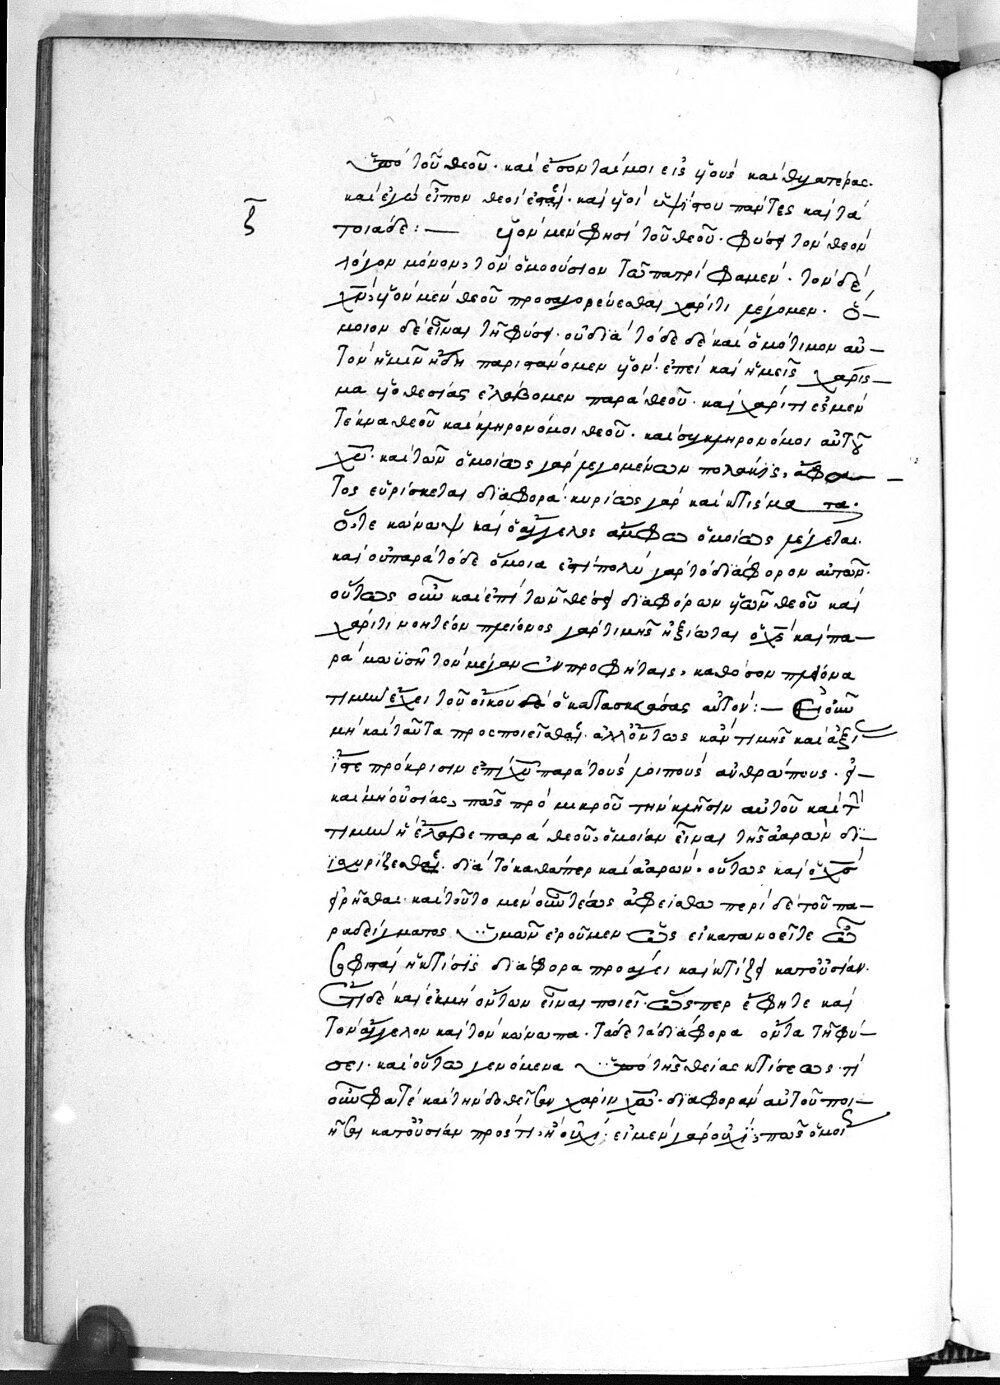 ὑπὸ τοῦ θεοῦ· καὶ ἔσονταί μοι εἰς υἱοὺς καὶ θυγατέρας·
καὶ ἐγὼ εἶπον θεοί ἐσταί· καὶ υἱοὶ ὑψίστου πάντες καὶ τὰ
ζ̄
τοιάδε :— υἱὸν μὲν φησὶ τοῦ θεοῦ· φύσει τὸν θεὸν
λόγον μόνον, τὸν ὁμοούσιον τῷ πατρί φαμεν· τὸν δὲ
χ̅ν̅, υἱὸν μὲν θεοῦ προσαγορεύεσθαι χάριτι λέγομεν· ὅ–
μοιον δὲ εἶναι τῇ φύσει· οὐ διὰ τόδε δὲ καὶ ὁμότιμον αὐ–
τὸν ἡμῖν ἤδη παριστάνομεν υἱόν· ἐπεὶ καὶ ἡμεῖς χάρισ–
μα υἱοθεσίας ἐλάβομεν παρὰ θεοῦ· καὶ χάριτι ἐσμὲν
τέκνα θεοῦ καὶ κληρονόμοι θεοῦ· καὶ συγκληρονόμοι αὐτοῦ
χ̅υ̅· καὶ τῶν ὁμοίως γὰρ λεγομένων πολλάκις, ἄφα–
τος εὑρίσκεται διαφορά· κυρίως γὰρ καὶ κτίσματα·
ὅ, τε κώνωψ καὶ ὁ ἄγγελος ἄμφω ὁμοίως λέγεται·
καὶ οὐ παρὰ τόδε ὅμοια ἐπιπολὺ γὰρ τὸ διάφορον αὐτῶν·
οὕτως οὖν καὶ ἐπὶ τῶν θέσει διαφόρων υἱῶν θεοῦ καὶ
χάριτι νοητέον πλείονος γὰρ τιμῆς ἠξίωται ὁ χ̅ς̅ καὶ πα–
ρὰ μωϋσῆ τὸν μέγαν ἐν προφήταις, καθόσον πλείονα
τιμὴν ἔχει τοῦ οἴκου ὁ κατασκευάσας αὐτόν :— Εἰ οὖν
μὴ καὶ ταῦτα προσποιεῖσθαι· ἀλλ' ὄντως κἂν τιμῆς καὶ ἀξι
ΐστε πρόκρισιν ἐπὶ χ̅ν̅ παρὰ τοὺς λοιποὺς ἀνθρώπους· εἰ–
καὶ μὴ οὐσίας, πῶς πρὸ μικροῦ τὴν κλῆσιν αὐτοῦ καὶ τὴν
τιμὴν ἣ ἔλαβε παρὰ θεοῦ, ὁμοίαν εἶναι τῆς ἀαρὼν δι–
ϊσχυρίζεσθαι· διὰ τὸ καθάπερ καὶ ἀαρών· οὕτως καὶ ὁ χ̅ς̅
εἰρῆσθαι· καὶ τοῦτο μὲν οὖν τέως ἀφείσθω περὶ δὲ τοῦ πα–
ραδείγματος ὑμῶν ἐροῦμεν ὡς εἰ κατανοεῖτε
ἡ κτίσις διάφορα προάγει καὶ κτίζει κατ' οὐσίαν·
δὲ καὶ ἐκ μὴ ὄντων εἶναι ποιεῖ· ὥσπερ ἔφητε καὶ
τὸν ἄγγελον καὶ τὸν κώνωπα· τάδε τὰ διάφορα ὄντα τῇ φύ–
σει· καὶ οὕτω γενόμενα ὑπὸ τῆς θείας κτίσεως· τί
οὖν φατὲ καὶ τὴν δοθεῖσαν χάριν χ̅ω̅· διαφορὰν αὐτοῦ ποι–
ῆσαι κατ' οὐσίαν πρός τι, ἢ οὐχί; εἰ μὲν γὰρ οὐχί, πῶς ὅμοι